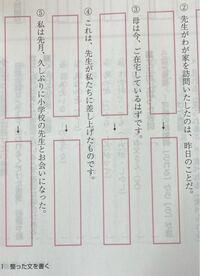 ② 先生がわが家を訪問いたしたのは、昨日のことだ。
③ 母は今、ご在宅しているはずです。
④ これは、先生が私たちに差し上げたものです。
⑤ 私は先月、久しぶりに小学校の先生とお会いになった。
整った文を書く